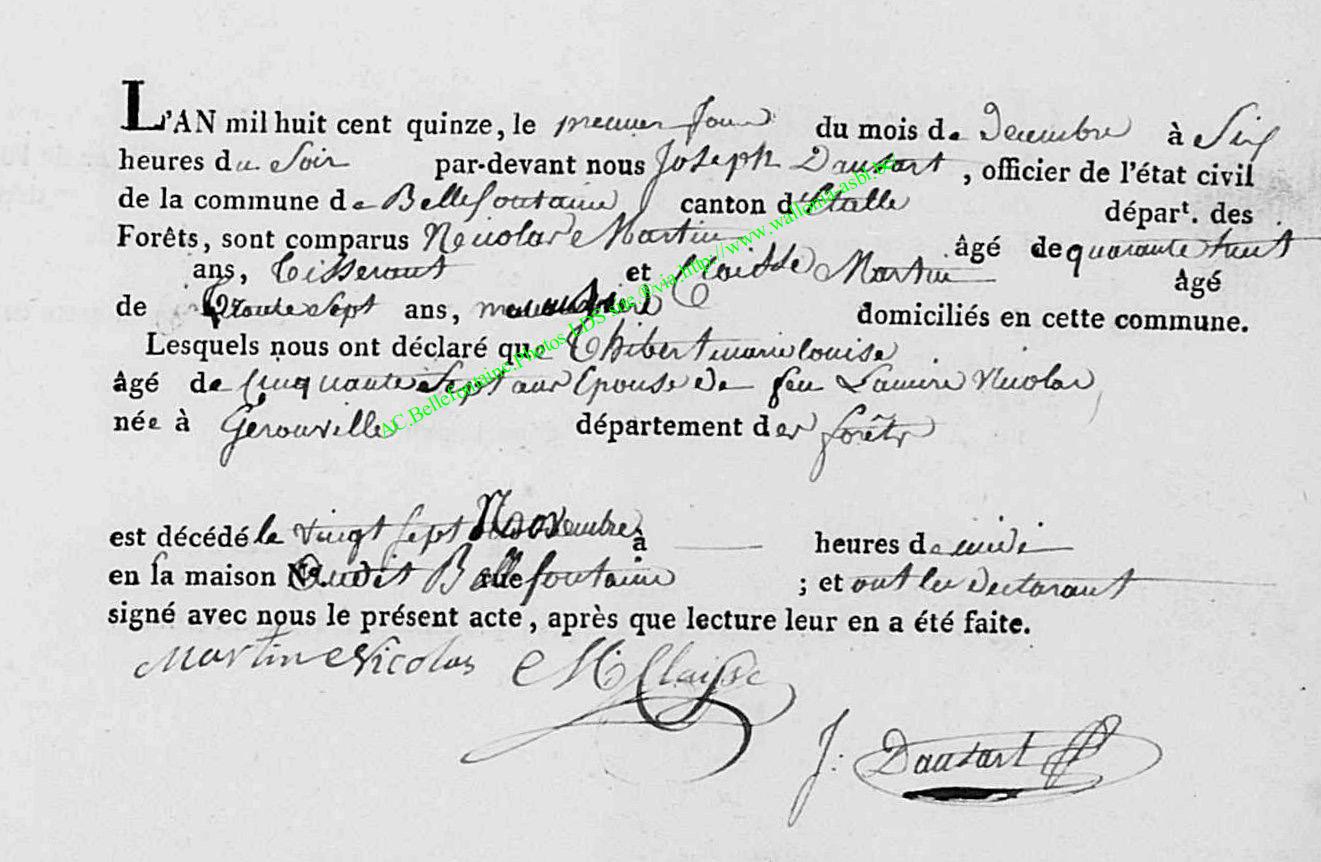 L'AN mil huit cent quinze, le premier Jour du mois de Decembre à Six
heures du Soir par-devant nous Joseph Dausart, officier de l'état civil
de la commune de Bellefontaine canton d'Etalle départ. des
Forêts, sont comparus Nicolas Martin âgé de quarante huit
ans, tisserant et Claisse Martin âgé
de trente Sept ans, domiciliés en cette commune.
Lesquels nous ont déclaré que Thibert marie louise
âgé de Cinquante Sept ans Epouse de feu Nicolas,
née à Gerouville département des forêts
est décédé le vingt Sept Novembre à — heures de midi
en la maison audit Bellefontaine ; et ont les declarant
signé avec nous le présent acte, après que lecture leur en a été faite.
Martin Nicolas M Claisse
J: Dausart
AC.Bellefontaine.Photos LDS via http://www.wallonia-asbl.be